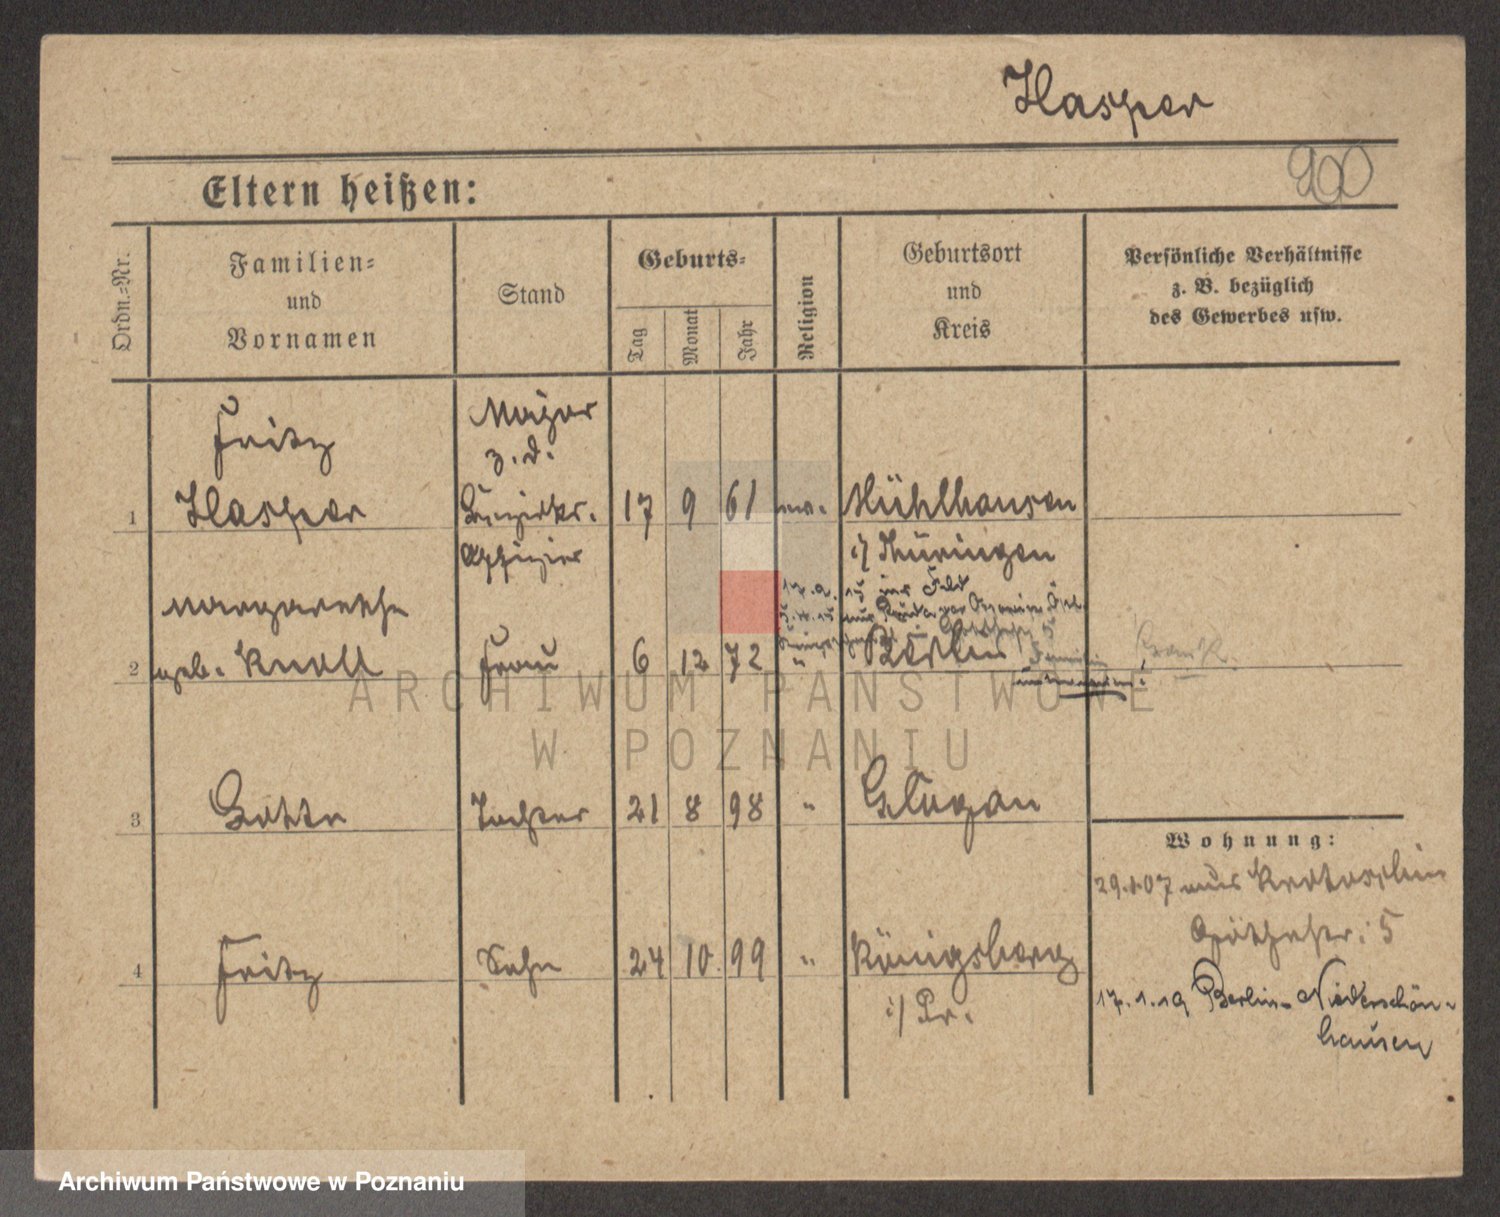 Hasper
900
Eltern heißen:
Ordn.=Nr.
Familien=
und
Vornamen
Stand
Geburts=
Tag
Monat
Jahr
Religion
Geburtsort
und
Kreis
Persönliche Verhältnisse
z. B. bezüglich
des Gewerbes usw.
Fritz
Major
z. d.
1 Hasper Bezirks. 17 9 61 ev. Mühlhausen
Offizier i/ Thüringen
ins Feld
Margarethe
2 geb. Knoll Frau 6 12 72 " Berlin
ARCHIWUM PAŃSTWOWE
W POZNANIU
3 Lotte Tochter 21 8 98 " Glogau
Wohnung:
29.1.07 aus Krotoschin
4 Fritz Sohn 24 10 99 " Königsberg
i/ Pr.
5
17.1.19 Berlin-Niederschön-
hausen
Archiwum Państwowe w Poznaniu